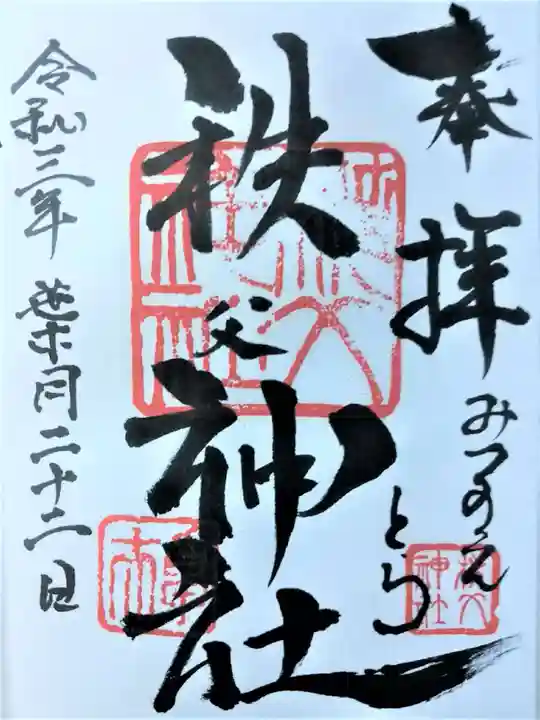 奉拝
みつのえ
とら
秩父神社
秩父神社
秩父神社
令和三年 葉月二十二日